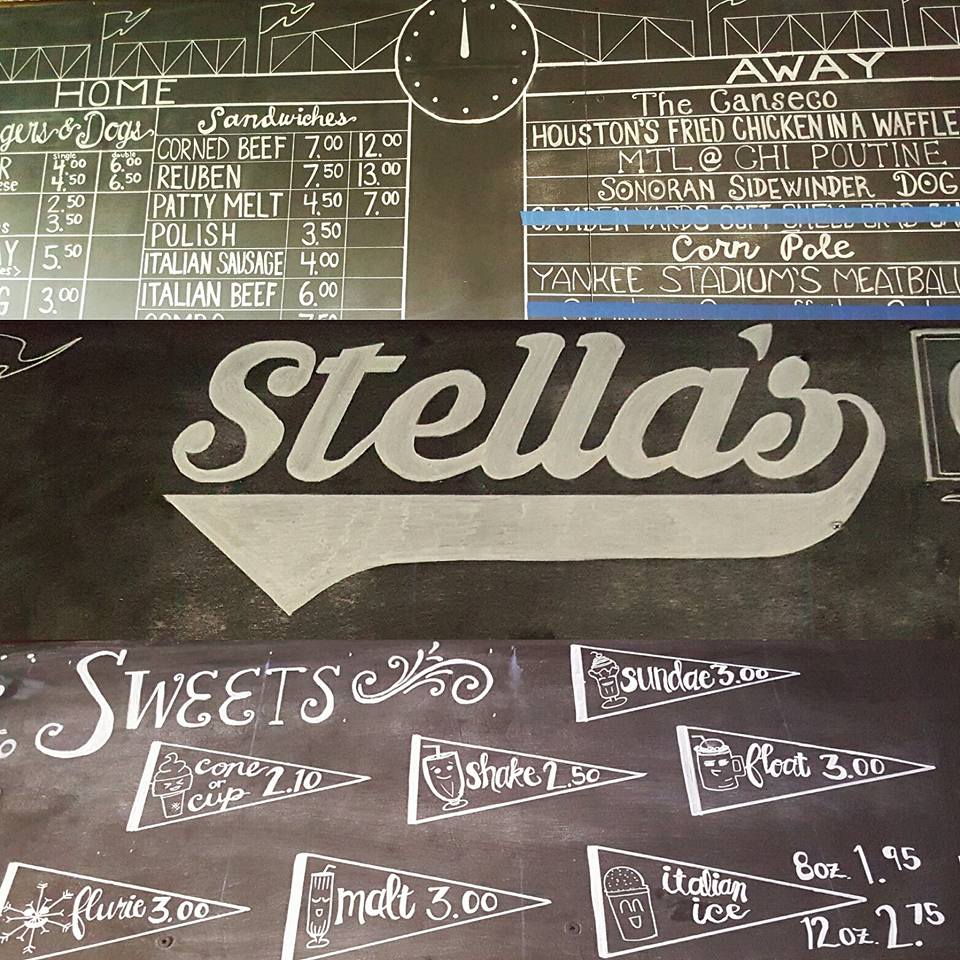 HOME
gers & Dogs
single double
4.00 6.00
4.50 6.50
2.50
3.50
5.50
3.00
Sandwiches
CORNED BEEF 7.00 12.00
REUBEN 7.50 13.00
PATTY MELT 4.50 7.00
POLISH 3.50
ITALIAN SAUSAGE 4.00
ITALIAN BEEF 6.00
AWAY
The Canseco
HOUSTON'S FRIED CHICKEN IN A WAFFLE
MTL @ CHI POUTINE
SONORAN SIDEWINDER DOG
Corn Pole
YANKEE STADIUM'S MEATBALL
Stella's
SWEETS
sundae 3.00
cone or cup 2.10
shake 2.50
float 3.00
flurie 3.00
malt 3.00
italian ice
8oz. 1.95
12oz. 2.75